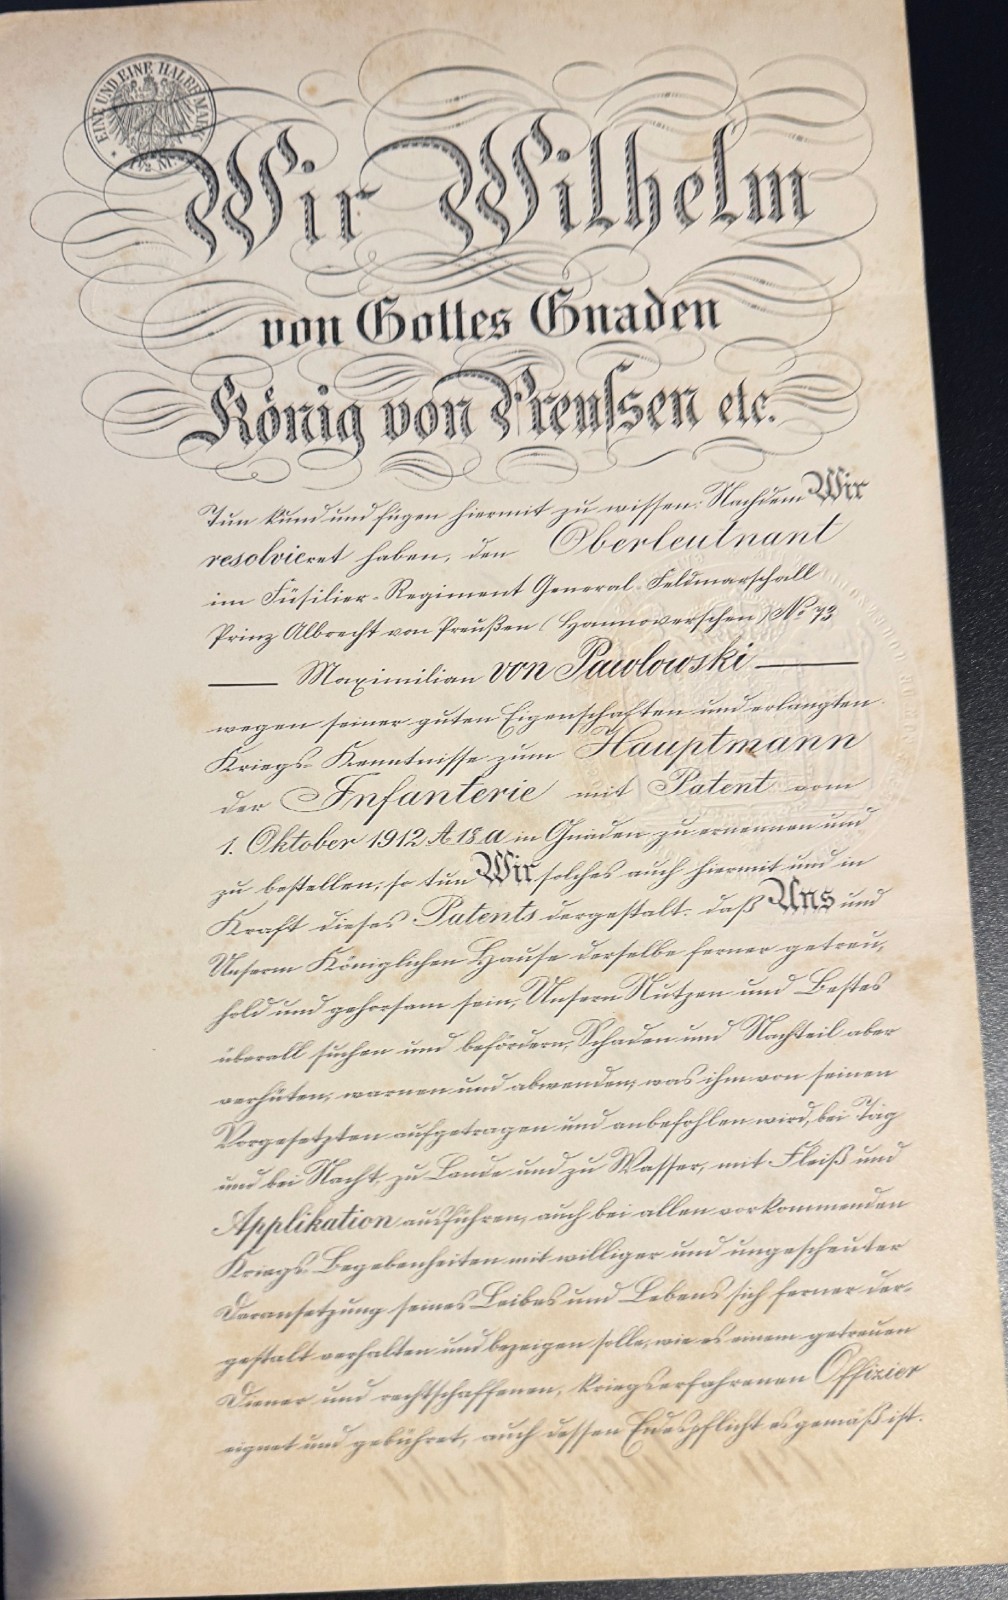 EINE UND EINE HALBE MARK
1½ M.
Wir Wilhelm
von Gottes Gnaden
König von Preussen etc.
Tun kund und fügen hiermit zu wissen: Nachdem Wir
resolvieret haben, den Oberleutnant
im Füsilier-Regiment General-Feldmarschall
Prinz Albrecht von Preußen (Hannoverschen) No 73
Maximilian von Pawlowski
wegen seiner guten Eigenschaften und erlangten
Kriegs-Kenntnisse zum Hauptmann
der Infanterie mit Patent vom
1. Oktober 1912 A 18 a in Gnaden zu ernennen und
zu bestellen; so tun Wir solches auch hiermit und in
Kraft dieses Patents dergestalt, daß Uns und
Unserm Königlichen Hause derselbe ferner getreu,
hold und gehorsam sein, Unsern Nutzen und Bestes
überall suchen und befördern, Schaden und Nachteil aber
verhüten, warnen und abwenden; was ihm von seinen
Vorgesetzten aufgetragen und anbefohlen wird, bei Tag
und bei Nacht, zu Lande und zu Wasser, mit Fleiß und
Applikation ausführen, auch bei allen vorkommenden
Kriegs-Begebenheiten mit williger und ungescheuter
Daransetzung seines Leibes und Lebens sich ferner der-
gestalt verhalten und bezeigen solle, wie es einem getreuen
Diener und rechtschaffenen, kriegserfahrenen Offizier
eignet und gebühret, auch dessen Eidespflicht es gemäß ist.